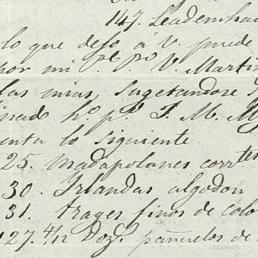 147. Leadenha
lo que dejo á V. puede
por mi pr. pr. V. Martin
las mias, sugetandose
hr. pr. J. M. M
enta lo siguiente
25. Madapolanes corrtes
30. Irlandas algodon
31. trages finos de colo
127. 4/12 Doz. pañuelos de